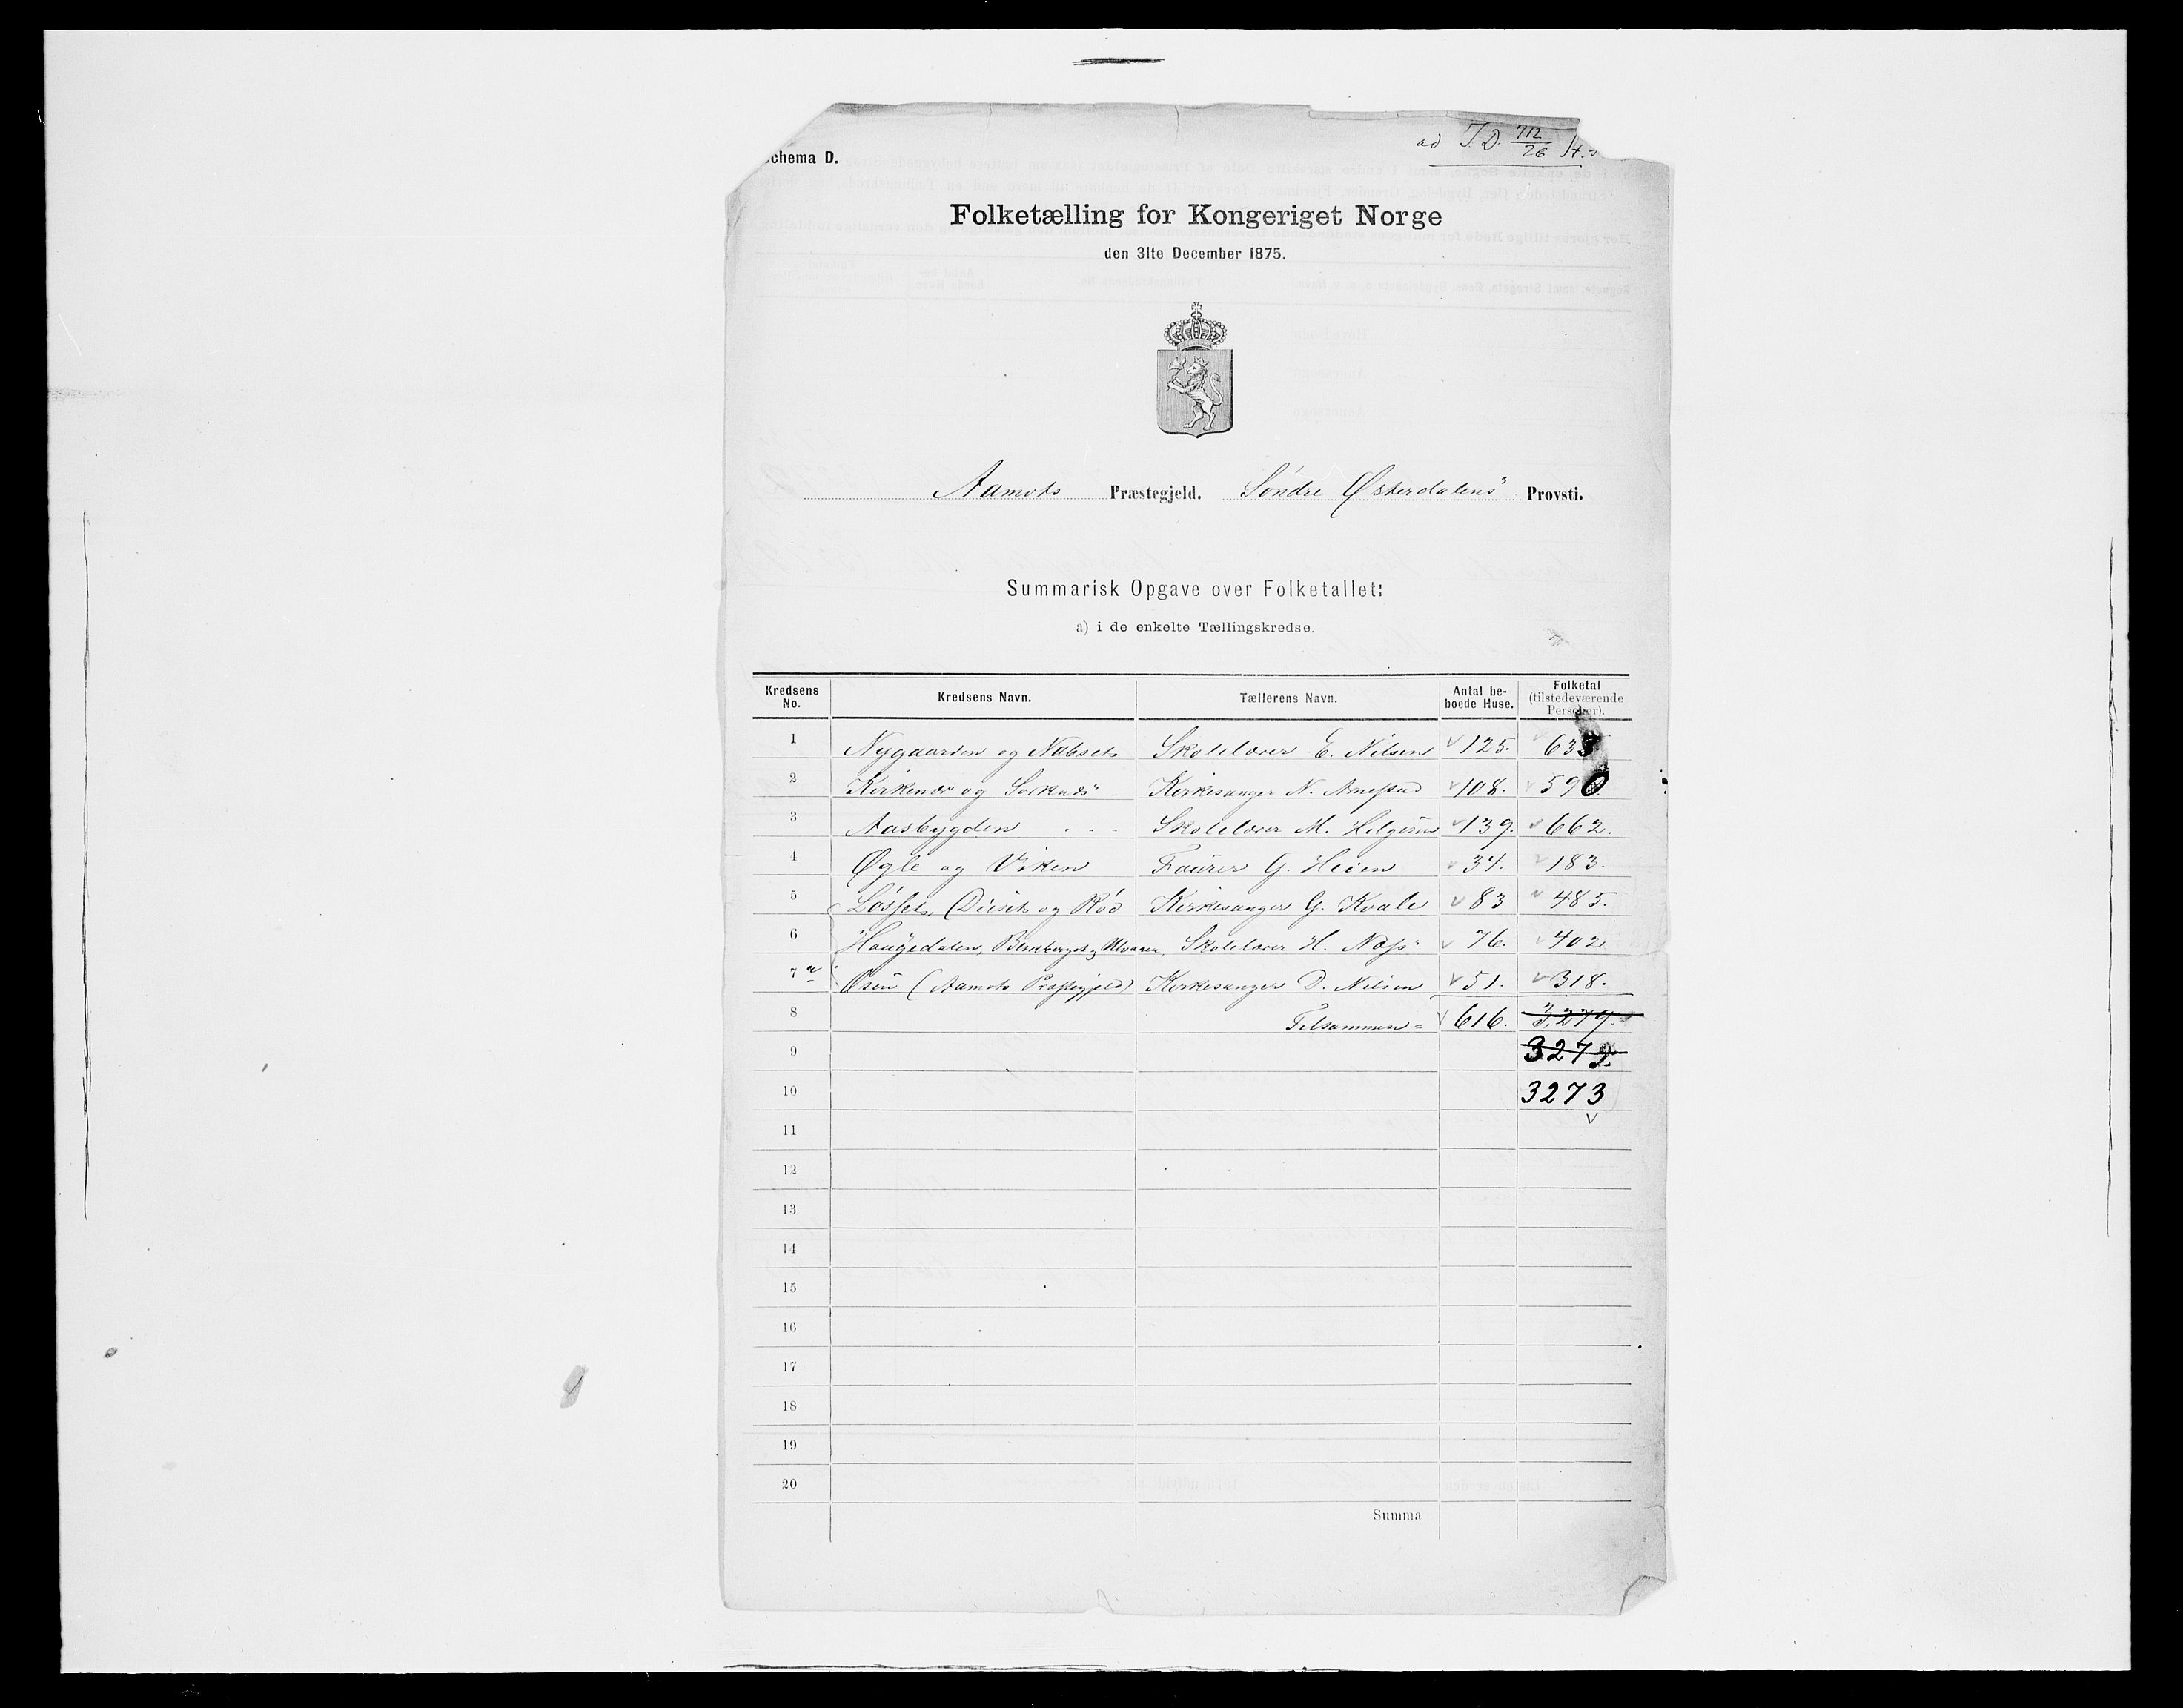 ad J.D. 712/26
chema D.
Folketælling for Kongeriget Norge
den 31te December 1875.
Aamots Præstegjeld. Søndre Østerdalens Provsti.
Summarisk Opgave over Folketallet:
a) i de enkelte Tællingskredse.
Kredsens No. Kredsens Navn. Tællerens Navn. Antal beboede Huse. Folketal (tilstedeværende Personer).
1 Nygaarden og Nabset Skolelærer E. Nilsen 125. 633
2 Kirkenær og Sorknæs Kirkesanger N. Arnestad 108. 590
3 Aasbygden Skolelærer M. Helgesen 139. 662.
4 Øgle og Viken Fourer G. Heien 34. 183.
5 Løsset, Deset og Rød Kirkesanger G. Kvale 83 485.
6 Haugedalen, og Ulvaaen, Skolelærer H. Næss 76. 402
7 a Osen (Aamots Præstegjeld) Kirkesanger D. Nilsen 51. 318.
8 Tilsammen = 616. 3,279.
9 3272
10 3273
11
12
13
14
15
16
17
18
19
20
Summa